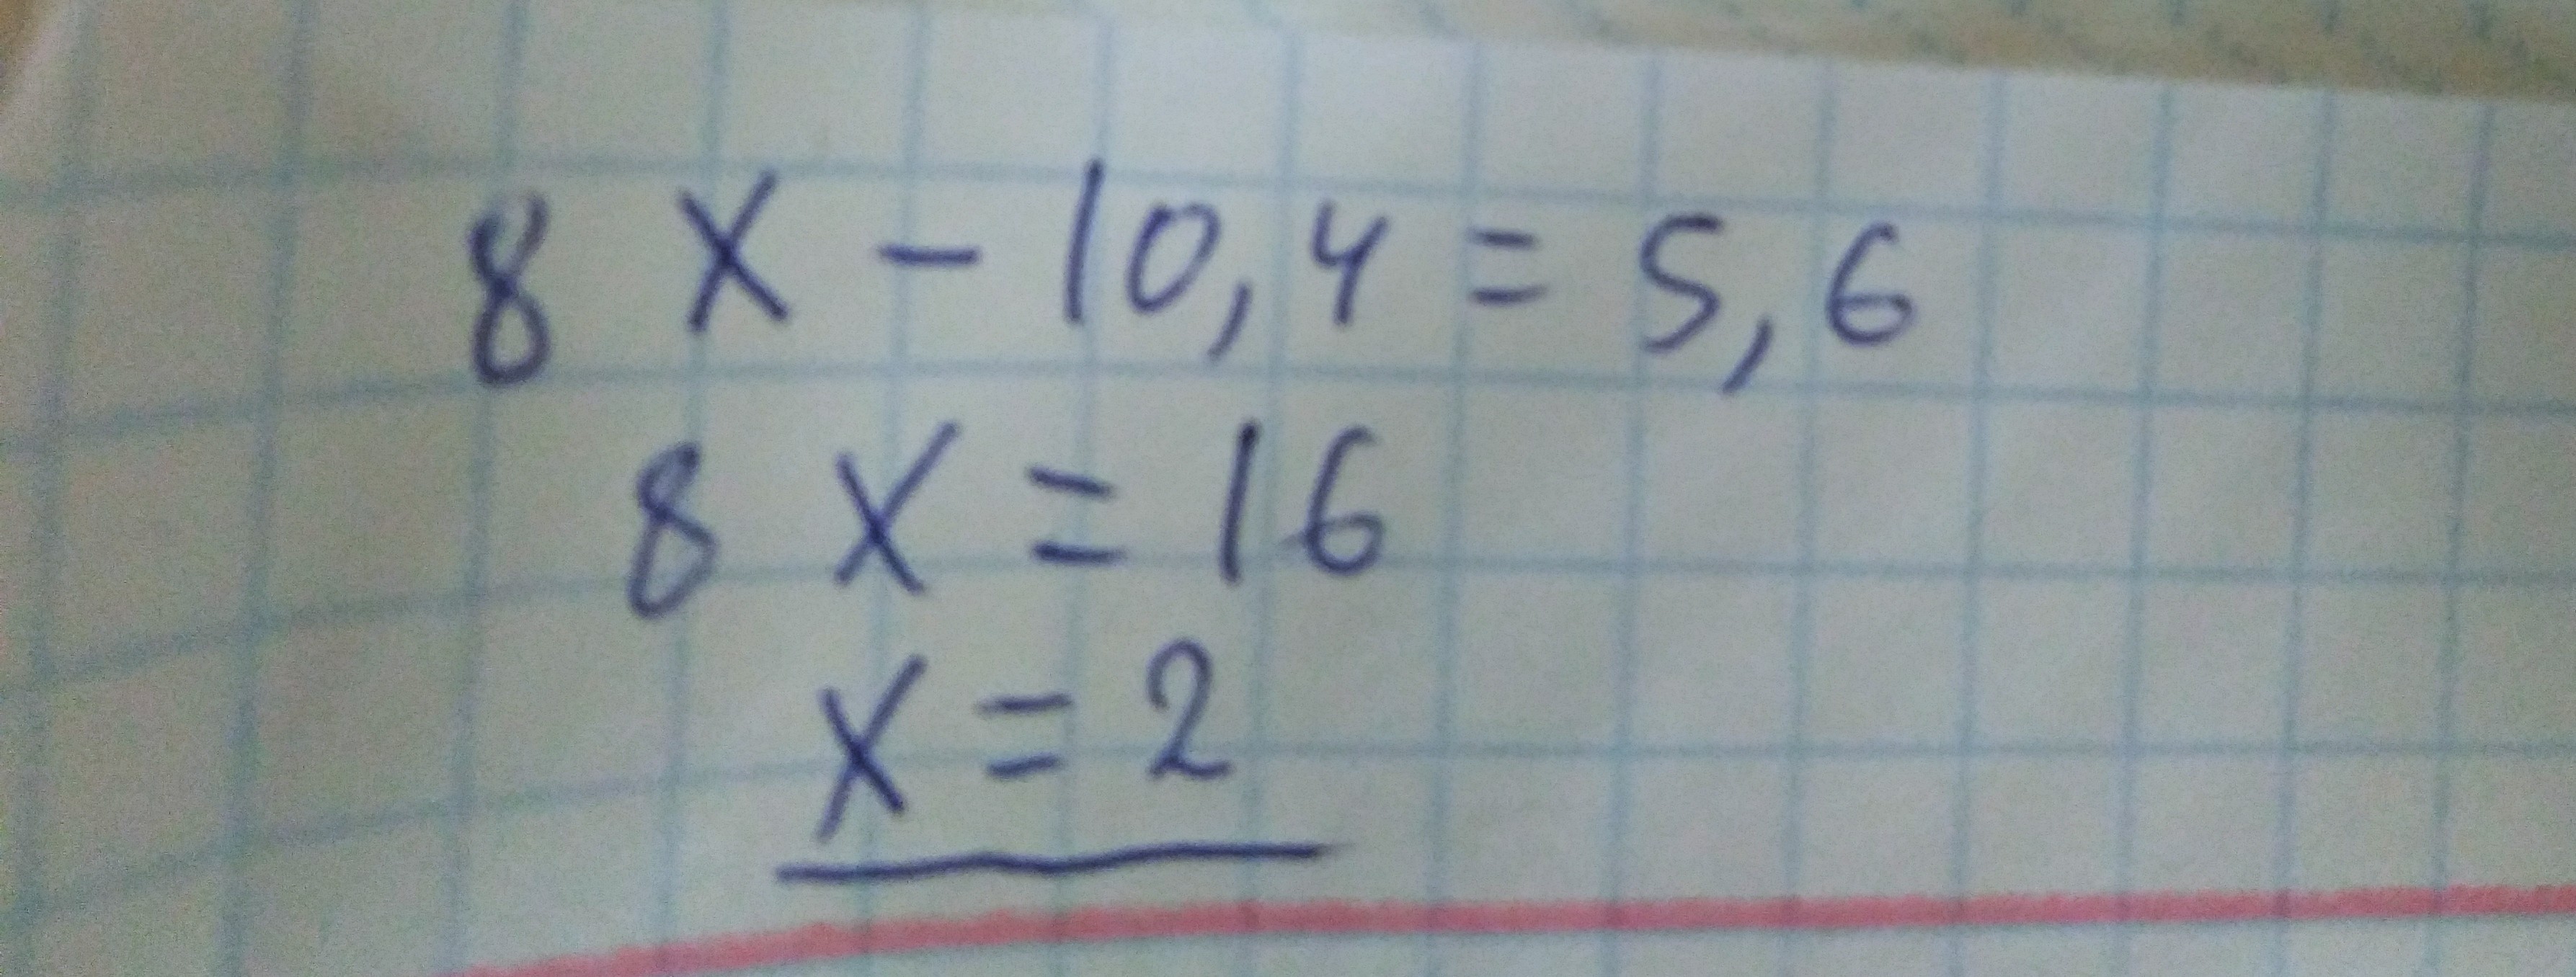 8 x - 10,4 = 5,6
8 x = 16
x = 2